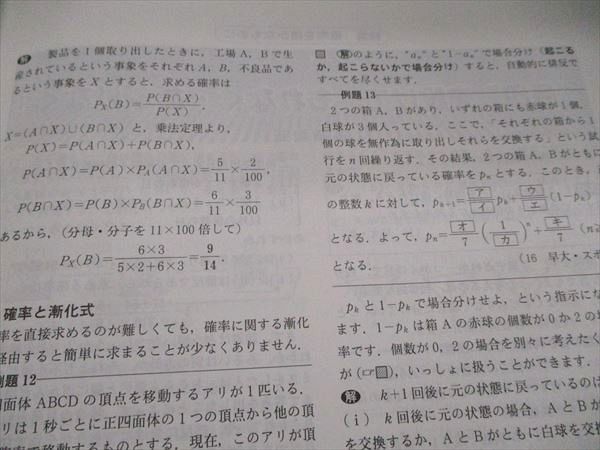 解 製品を1個取り出したときに,工場A,Bで生
産されているという事象をそれぞれA,B,不良品であ
るという事象をXとすると,求める確率は
P_X(B)=P(B∩X)/P(X).
X=(A∩X)∪(B∩X) と,乗法定理より,
P(X)=P(A∩X)+P(B∩X),
P(A∩X)=P(A)×P_A(A∩X)=5/11×2/100,
P(B∩X)=P(B)×P_B(B∩X)=6/11×3/100
あるから,(分母・分子を11×100倍して)
P_X(B)=6×3/(5×2+6×3)=9/14.
確率と漸化式
率を直接求めるのが難しくても,確率に関する漸化
経由すると簡単に求まることが少なくありません.
例題12
四面体ABCDの頂点を移動するアリが1匹いる.
リは1秒ごとに正四面体の1つの頂点から他の頂
確率で移動するものとする.現在,このアリが頂
(解)のように,"aₙ"と"1-aₙ"で場合分け(起こる
か,起こらないかで場合分け)すると,自動的に排反で
すべてを尽くせます.
例題13
2つの箱A,Bがあり,いずれの箱にも赤球が1個,
白球が3個入っている.ここで,「それぞれの箱から1
個の球を無作為に取り出しそれらを交換する」という試
行をn回繰り返す.その結果,2つの箱A,Bがともに
元の状態に戻っている確率をpₙとする.このとき,
の整数kに対して,p_{k+1}=ア/イ p_k+ウ/エ(1-p_k)
となる.よって,pₙ=オ/7(1/カ)ⁿ+キ/7
となる.
(16 早大・スポ
p_kと1-p_kで場合分けせよ,という指示にな
ます.1-p_kは箱Aの赤球の個数が0か2の場
率です.個数が0,2の場合を別々に考えたく
が(☞),いっしょに扱うことができます.
解 k+1回後に元の状態に戻っているのは
(i) k回後に元の状態の場合,AとBが
を交換するか,AとBがともに白球を交換